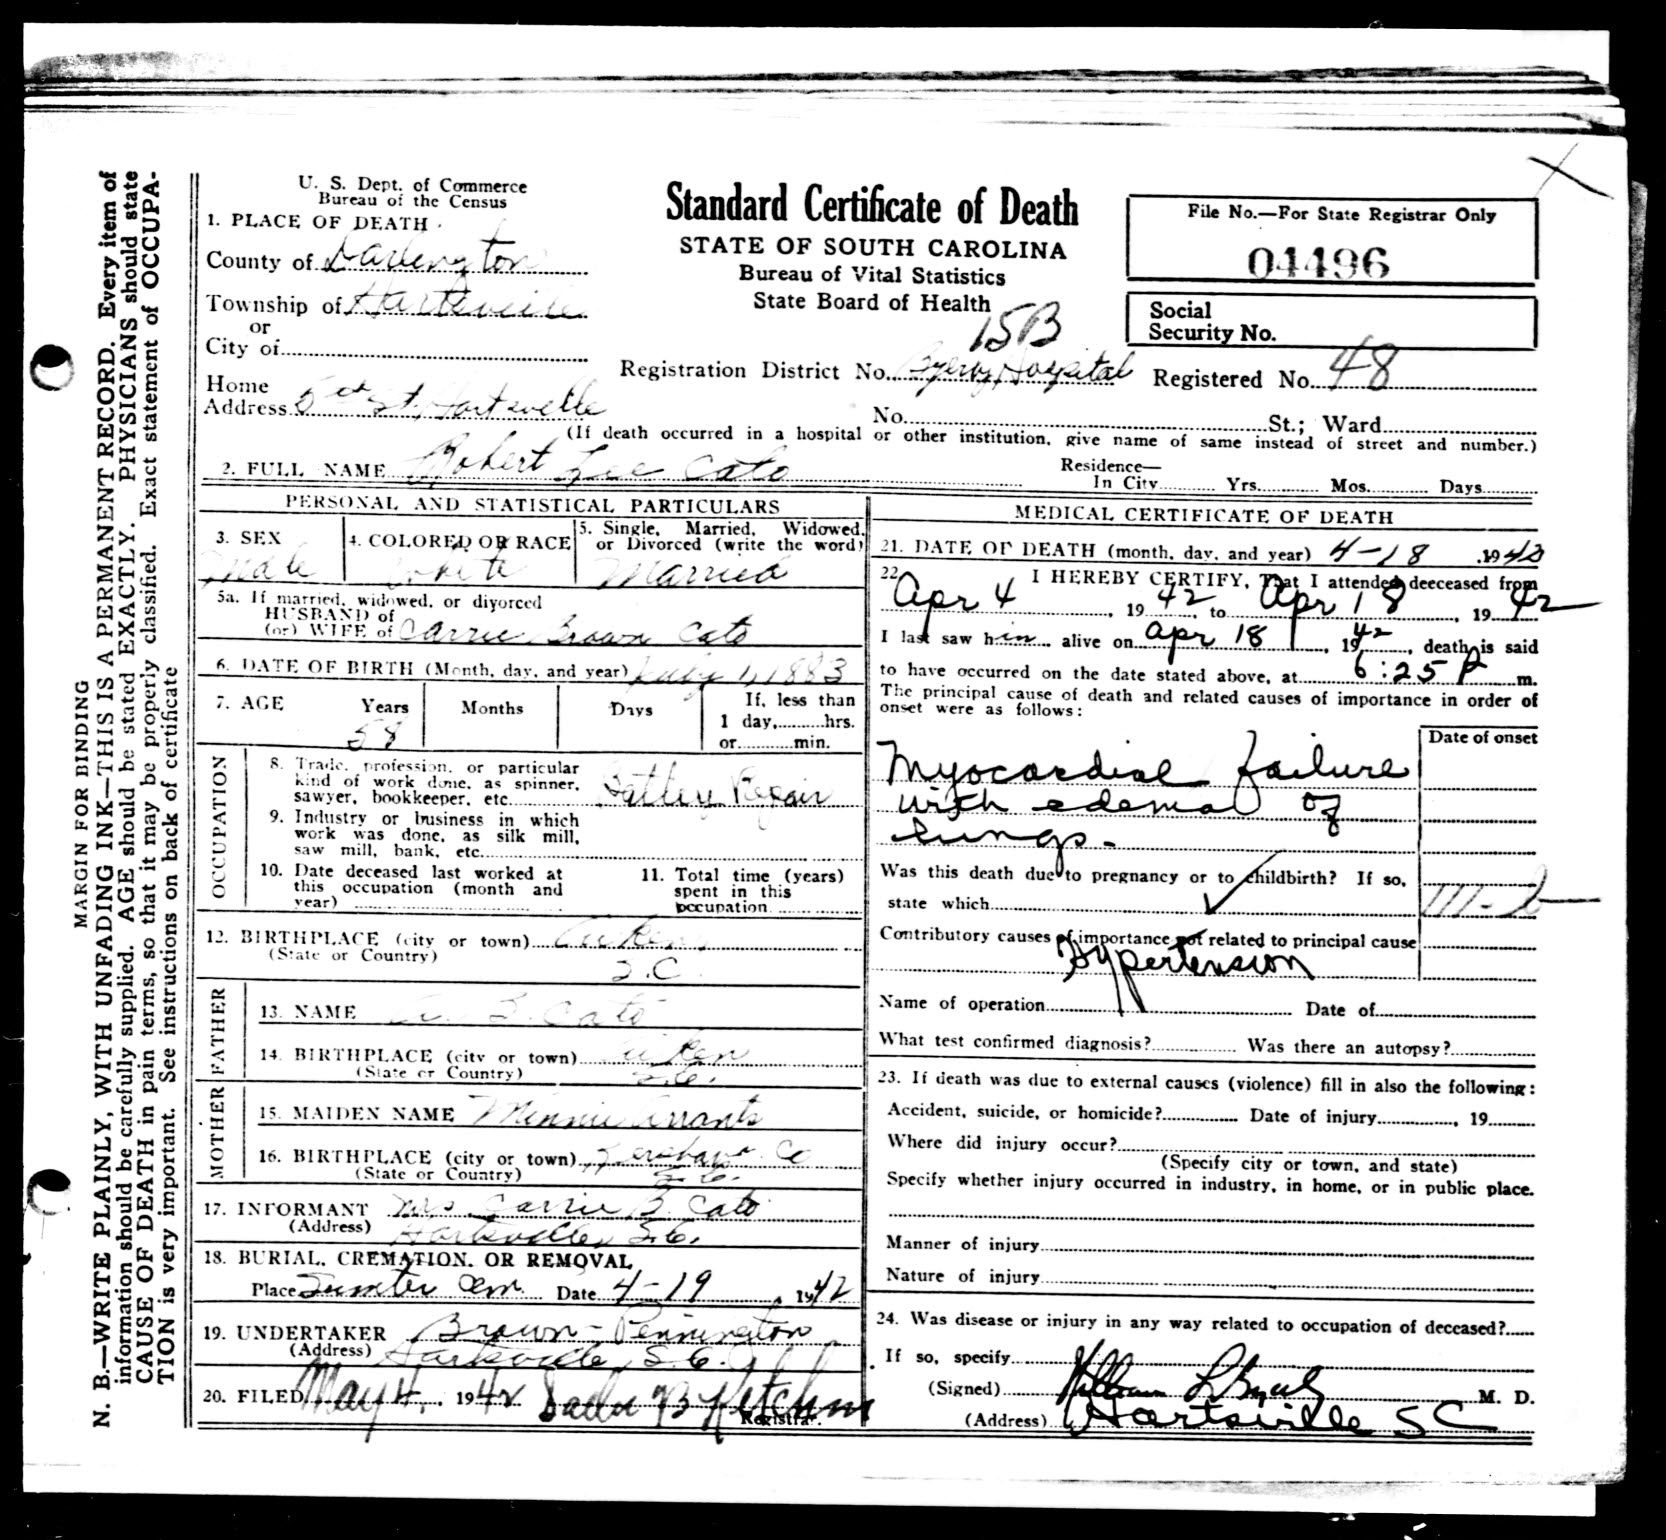 N. B.—WRITE PLAINLY, WITH UNFADING INK—THIS IS A PERMANENT RECORD. Every item of
information should be carefully supplied. AGE should be stated EXACTLY. PHYSICIANS should state
CAUSE OF DEATH in pain terms, so that it may be properly classified. Exact statement of OCCUPA-
TION is very important. See instructions on back of certificate
MARGIN FOR BINDING
U. S. Dept. of Commerce
Bureau of the Census
Standard Certificate of Death
STATE OF SOUTH CAROLINA
Bureau of Vital Statistics
State Board of Health
File No.—For State Registrar Only
04496
Social
Security No.
1. PLACE OF DEATH
County of Darlington
Township of Hartsville
or
City of
15B
Registration District No. Byerly Hospital Registered No. 48
Home
Address 5th St, Hartsville
No. St.; Ward
(If death occurred in a hospital or other institution, give name of same instead of street and number.)
2. FULL NAME Robert Lee Cato
Residence—
In City Yrs. Mos. Days
PERSONAL AND STATISTICAL PARTICULARS
3. SEX
Male
4. COLORED OR RACE
White
5. Single, Married, Widowed,
or Divorced (write the word)
Married
5a. If married, widowed, or divorced
HUSBAND of
(or) WIFE of Carrie Brown Cato
6. DATE OF BIRTH (Month, day, and year) July 1, 1883
7. AGE Years Months Days
58
If, less than
1 day, hrs.
or min.
OCCUPATION
8. Trade, profession, or particular
kind of work done, as spinner,
sawyer, bookkeeper, etc. Battery Repair
9. Industry or business in which
work was done, as silk mill,
saw mill, bank, etc.
10. Date deceased last worked at
this occupation (month and
year)
11. Total time (years)
spent in this
occupation
12. BIRTHPLACE (city or town) Aiken
(State or Country) S.C.
FATHER
13. NAME Cato
14. BIRTHPLACE (city or town) Aiken
(State or Country) S.C.
MOTHER
15. MAIDEN NAME Minnie Arrants
16. BIRTHPLACE (city or town) Kershaw Co
(State or Country) S.C.
17. INFORMANT Mrs Carrie B. Cato
(Address) Hartsville, S.C.
18. BURIAL, CREMATION, OR REMOVAL
Place Sumter Cem. Date 4-19, 1942
19. UNDERTAKER Brown-Pennington
(Address) Hartsville, S.C.
20. FILED May 4, 1942
Registrar.
MEDICAL CERTIFICATE OF DEATH
21. DATE OF DEATH (month, day, and year) 4-18, 1942
22. I HEREBY CERTIFY, That I attended deceased from
Apr 4, 1942, to Apr 18, 1942
I last saw him alive on Apr 18, 1942, death is said
to have occurred on the date stated above, at 6:25 P m.
The principal cause of death and related causes of importance in order of
onset were as follows:
Date of onset
Myocardial failure
with edema of
lungs.
Was this death due to pregnancy or to childbirth? If so,
state which
Contributory causes of importance not related to principal cause
Hypertension
Name of operation Date of
What test confirmed diagnosis? Was there an autopsy?
23. If death was due to external causes (violence) fill in also the following:
Accident, suicide, or homicide? Date of injury, 19
Where did injury occur?
(Specify city or town, and state)
Specify whether injury occurred in industry, in home, or in public place.
Manner of injury
Nature of injury
24. Was disease or injury in any way related to occupation of deceased?
If so, specify
(Signed) William L Byerly M. D.
(Address) Hartsville SC